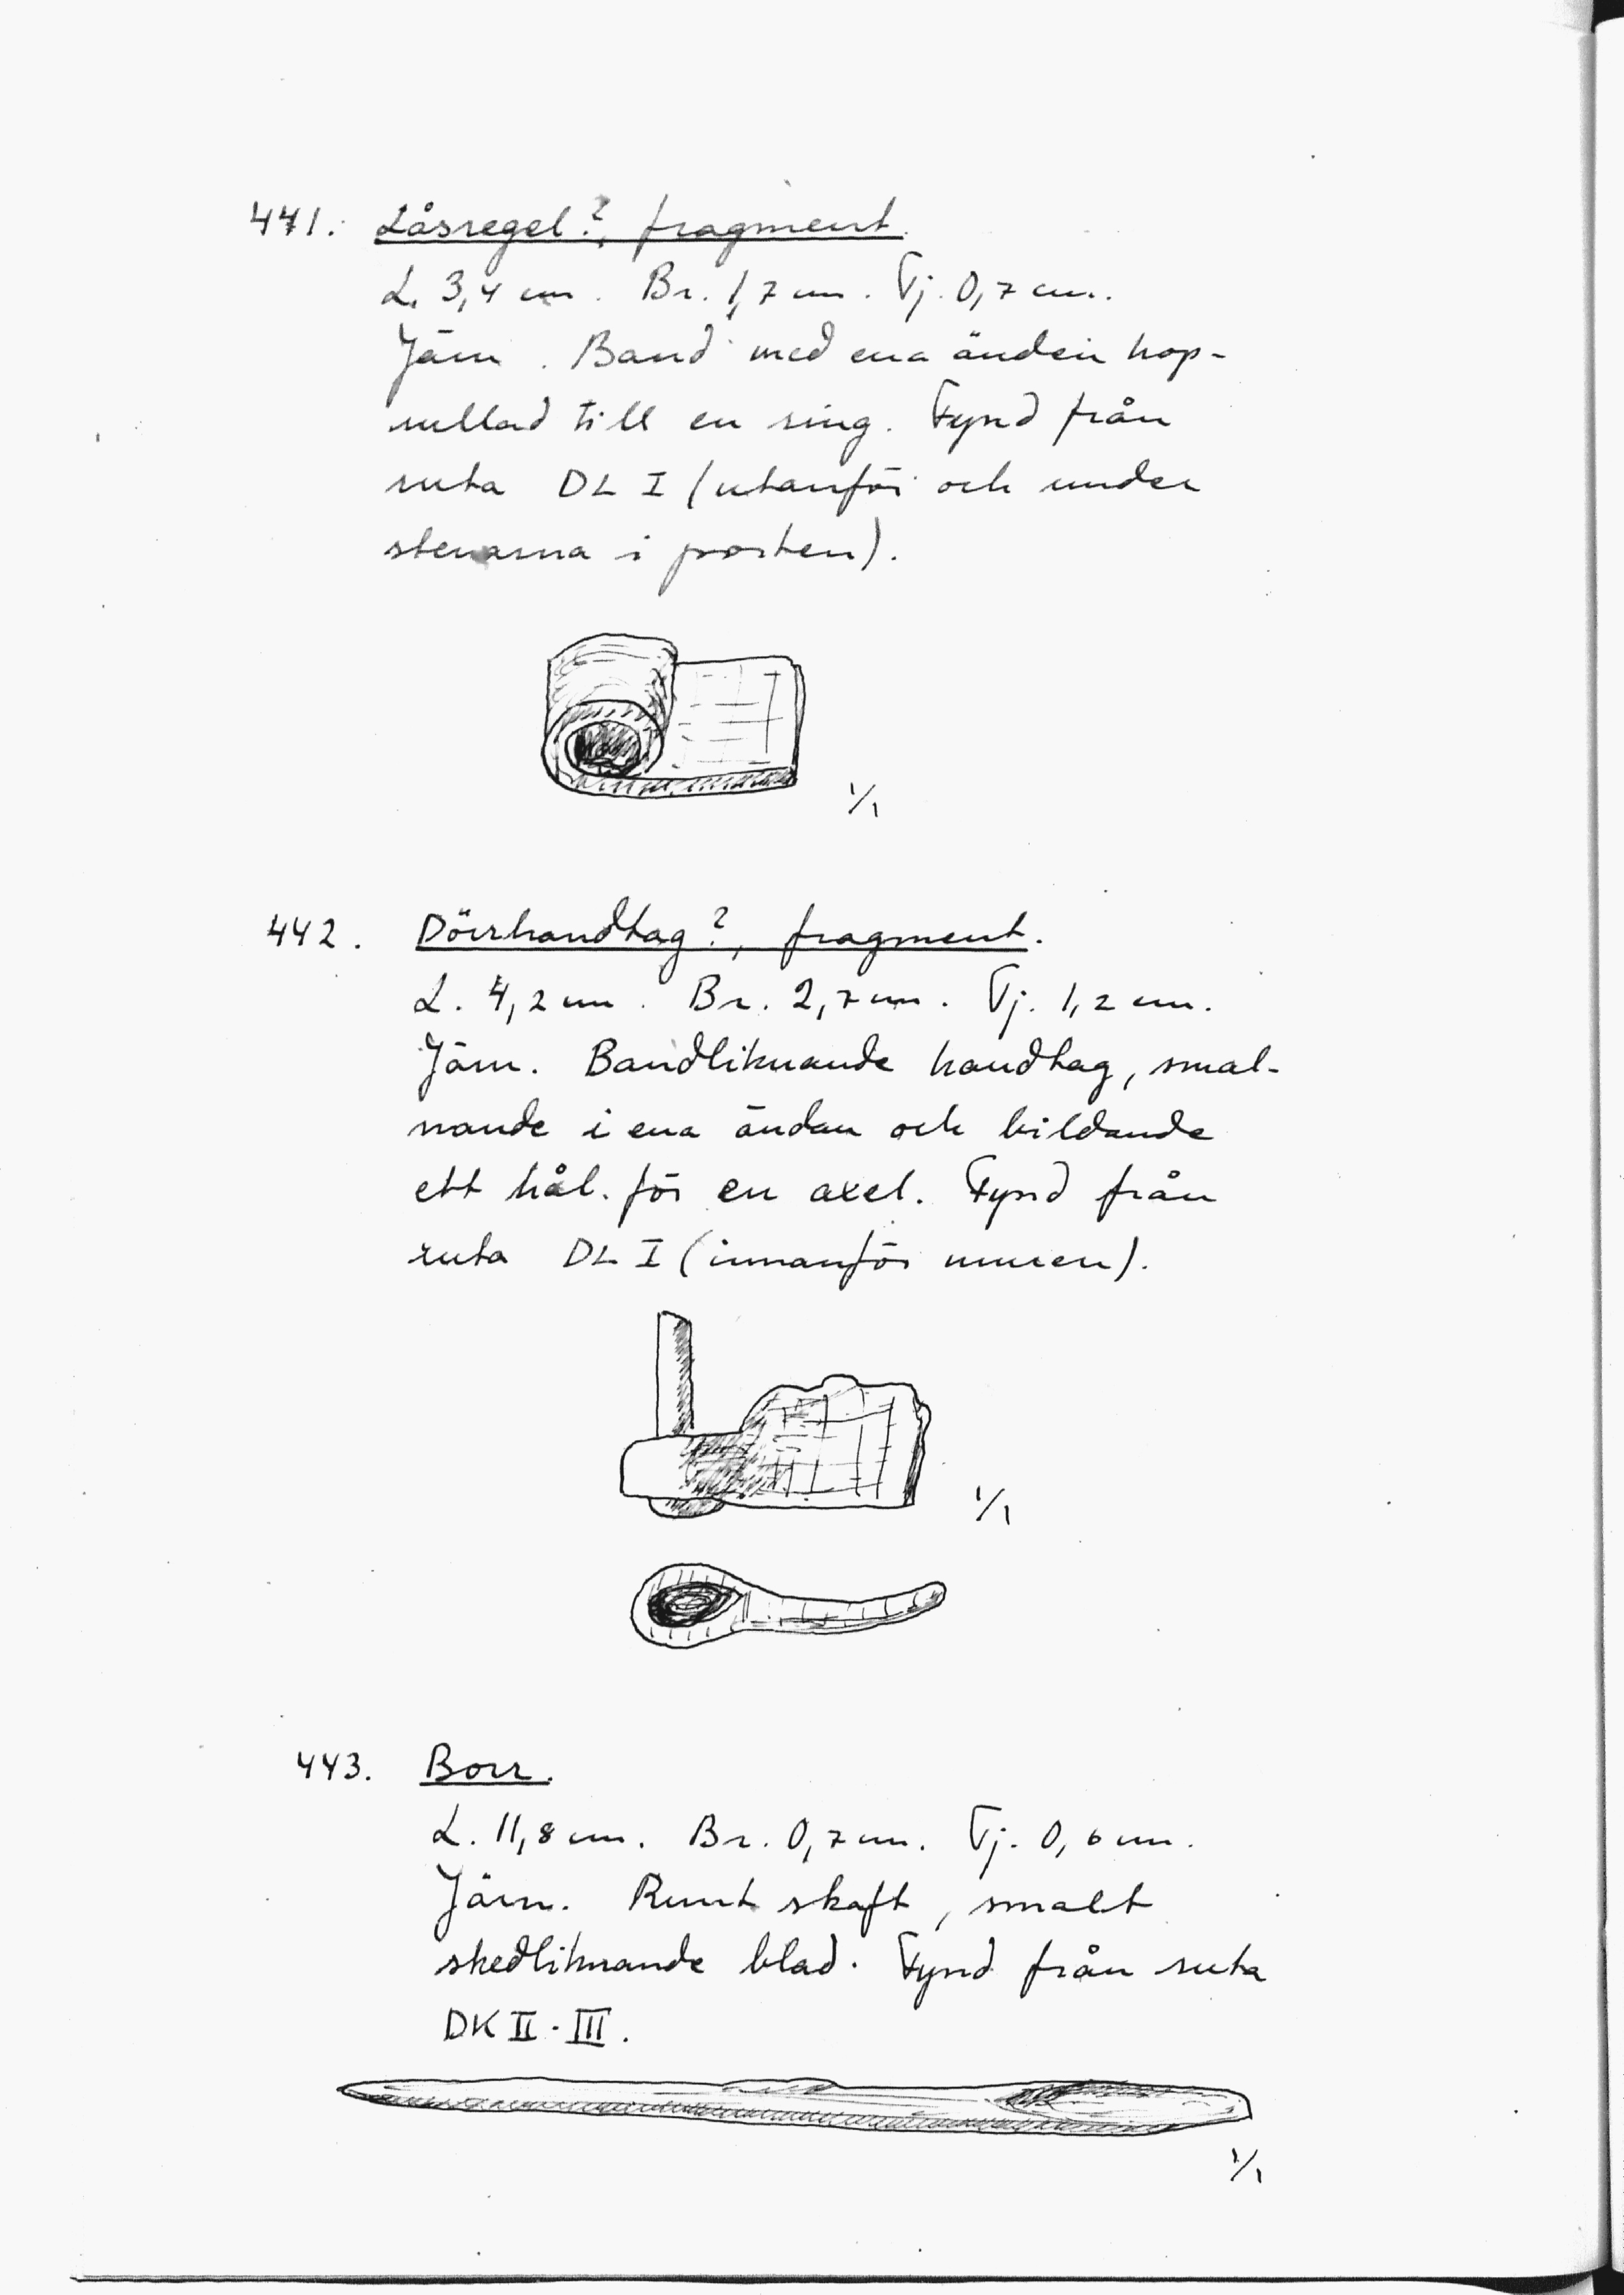 441. Låsregel?, fragment.
L. 3,4 cm. Br. 1,7 cm. Tj. 0,7 cm.
Järn. Band med ena änden hop-
rullad till en ring. Fynd från
ruta DL I (utanför och under
stenarna i porten).
1/1
442. Dörrhandtag?, fragment.
L. 4,2 cm. Br. 2,7 cm. Tj. 1,2 cm.
Järn. Bandliknande handtag, smal-
nande i ena ändan och bildande
ett hål för en axel. Fynd från
ruta DL I (innanför muren).
1/1
443. Borr.
L. 11,8 cm. Br. 0,7 cm. Tj. 0,6 cm.
Järn. Runt skaft, smalt
skedliknande blad. Fynd från ruta
DK II-III.
1/1